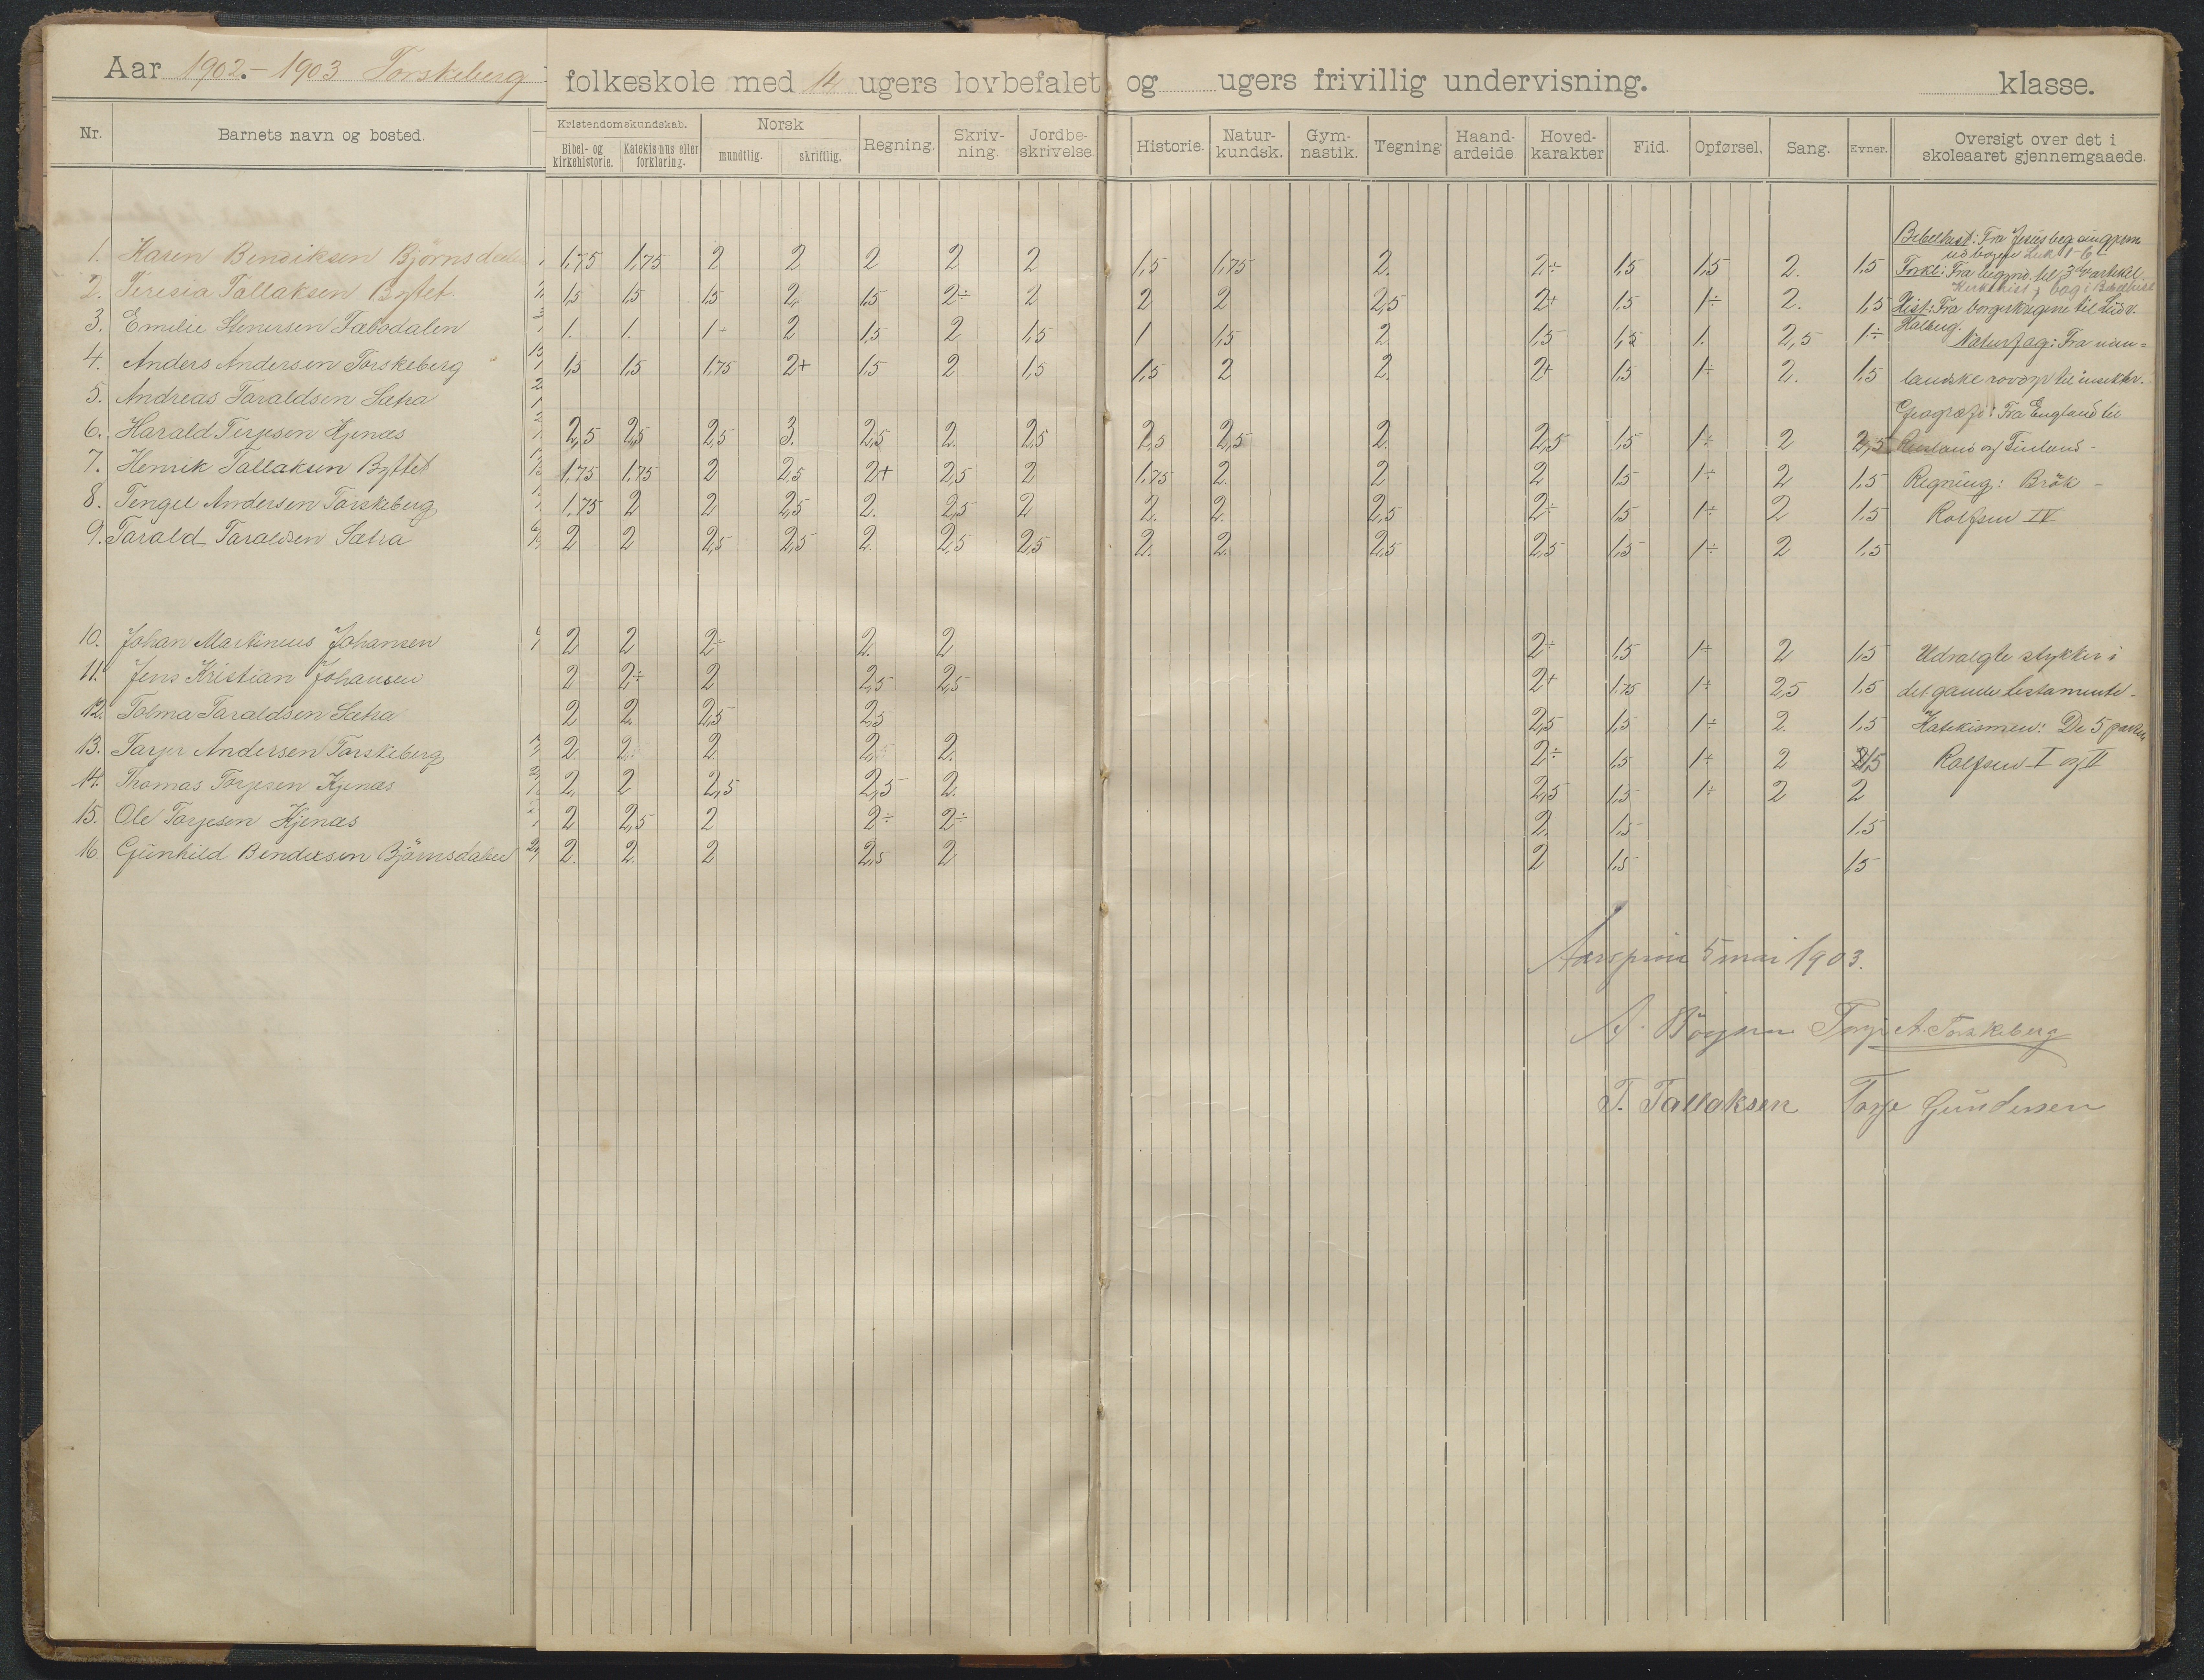 Aar 1902.-1903 Torskeberg folkeskole med 14 ugers lovbefalet og ugers frivillig undervisning. klasse.
Nr. Barnets navn og bosted. Kristendomskundskab. Bibel- og kirkehistorie. Katekismus eller forklaring. Norsk mundtlig. skriftlig. Regning. Skriv-ning. Jordbe-skrivelse. Historie. Natur-kundsk. Gym-nastik. Tegning Haand-arbeide Hoved-karakter Flid. Opførsel. Sang. Evner. Oversigt over det i skoleaaret gjennemgaaede.
1. Karen Bendiksen Bjørnsdalen 1,75 1,75 2 2 2 2 2 1,5 1,75 2. 2÷ 1,5 1,5 2. 1,5
2. Teresia Tallaksen Byttet 1,5 1,5 1,5 2. 1,5 2÷ 2 2 2 2,5 2+ 1,5 1÷ 2. 1,5
3. Emilie Stenersen Tabodalen 1. 1. 1÷ 2 1,5 2 1,5 1 1,5 2. 1,5 1,5 1. 2,5 1÷
4. Anders Andersen Torskeberg 1,5 1,5 1,75 2+ 1,5 2 1,5 1,5 2 2. 2+ 1,5 1÷ 2. 1,5
5. Andreas Taraldsen Sætra
6. Harald Terjesen Kjenæs 2,5 2,5 2,5 3. 2,5 2. 2,5 2,5 2,5 2. 2,5 1,5 1÷ 2 2,5
7. Henrik Tallaksen Byttet 1,75 1,75 2 2,5 2+ 2,5 2 1,75 2. 2 2 1,5 1÷ 2 1,5
8. Tengel Andersen Torskeberg 1,75 2 2 2,5 2. 2,5 2 2. 2. 2,5 2÷ 1,5 1÷ 2 1,5
9. Tarald Taraldsen Sætra 2 2 2,5 2,5 2. 2,5 2,5 2. 2. 2,5 2,5 1,5 1÷ 2 1,5
Bibelhist: Fra Jesus beg.
Luk 1-6
Forkl: Fra begynd. til 3die artikel
Hist: Fra borgerkrigene til Ludv.
Holberg.
Naturfag: Fra uden=
landske rovdyr til insekter.
Geografi: Fra England til
Rusland og Finland -
Regning: Brök -
Rolfsen IV
10. Johan Martinius Johansen 2 2 2÷ 2. 2 2÷ 1,5 1÷ 2 1,5 Udvalgte stykker i
11. Jens Kristian Johansen 2 2÷ 2 2,5 2,5 2+ 1,75 1÷ 2,5 1,5 det gamle testamente -
12. Tolma Taraldsen Sætra 2 2. 2,5 2,5 2,5 1,5 1÷ 2. 1,5 Katekismen: De 5 parter
13. Tarjer Andersen Torskeberg 2. 2. 2. 2. 2. 2÷ 1,5 1÷ 2 1,5 Rolfsen I og II
14. Thomas Torjesen Kjenæs 2. 2 2,5 2,5 2. 2,5 1,5 1÷ 2 2
15. Ole Torjesen Kjenæs 2 2,5 2 2÷ 2÷ 2. 1,5 1,5
16. Gunhild Bendixsen Bjørnsdalen 2. 2. 2 2,5 2 2 1,5 1,5
Aarsprøve 5 mai 1903.
Torje A. Torskeberg
T. Tallaksen Torje Gundersen